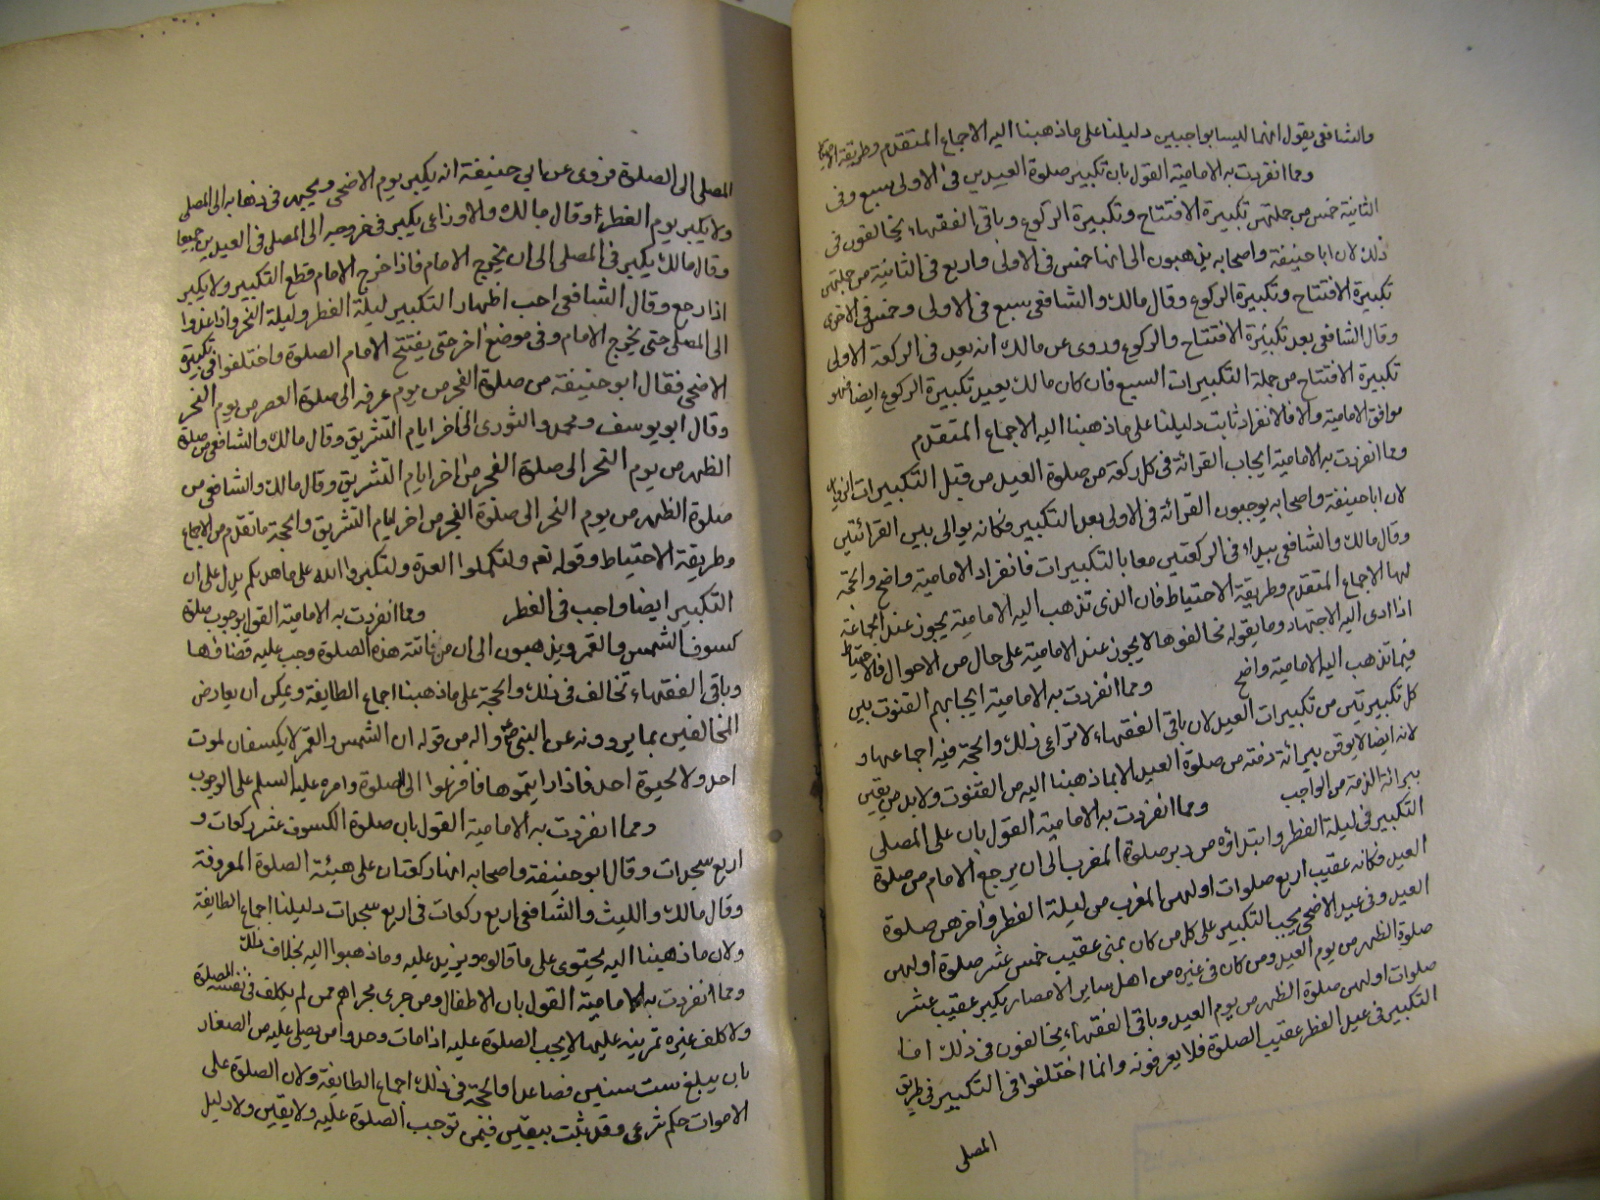 والشافعى يقول انهما ليسا بواجبين دليلنا على ماذهبنا اليه الاجماع المتقدم وطريقة الاحتياط
ومما انفردت به الامامية القول بان تكبير صلوة العيدين فى الاولى سبع وفى
الثانية خمس من جملتهن تكبيرة الافتتاح وتكبيرة الركوع وباقى الفقهاء يخالفون فى
ذلك لان اباحنيفة واصحابه يذهبون الى انها خمس فى الاولى واربع فى الثانية من جملتهن
تكبيرة الافتتاح وتكبيرة الركوع وقال مالك والشافعى سبع فى الاولى وخمس فى الاخرى
وقال الشافعى بعد تكبيرة الافتتاح والركوع وروى عن مالك انه يعد فى الركعة الاولى
تكبيرة الافتتاح من جملة التكبيرات السبع فان كان مالك يعيد تكبيرة الركوع ايضا فهو
موافق الامامية والا فالانفراد ثابت دليلنا على ماذهبنا اليه الاجماع المتقدم
ومما انفردت به الامامية ايجاب القرائة فى كل ركعة من صلوة العيد من قبل التكبيرات
لان اباحنيفة واصحابه يوجبون القرائة فى الاولى بعد التكبير فكانه يوالى بين القرائتين
وقال مالك والشافعى يبداء فى الركعتين معا بالتكبيرات فانفراد الامامية واضح والحجة
لها الاجماع المتقدم وطريقة الاحتياط فان الذى تذهب اليه الامامية يجوز عند الجماعة
اذا ادى اليه الاجتهاد وما يقوله مخالفوها لا يجوز عند الامامية على حال من الاحوال فالاحتياط
فيما تذهب اليه الامامية واضح ومما انفردت به الامامية ايجابهم القنوت بين
كل تكبيرتين من تكبيرات العيد لان باقى الفقهاء لا تراعى ذلك والحجة فيه اجماعها و
لانه ايضا لا يوقن ببرائة ذمته من صلوة العيد الا بماذهبنا اليه من القنوت ولابد من يقين
ببرائة الذمة من الواجب ومما انفردت به الامامية القول بان على المصلى
التكبير فى ليلة الفطر وابتداؤه من دبر صلوة المغرب الى ان يرجع الامام من صلوة
العيد فكانه عقيب اربع صلوات اولهن المغرب من ليلة الفطر واخرهن صلوة
العيد وفى عيد الاضحى يجب التكبير على كل من كان بمنى عقيب خمس عشر صلوة اولهن
صلوة الظهر من يوم العيد ومن كان فى غيره من اهل ساير الامصار يكبر عقيب عشر
صلوات اولهن صلوة الظهر من يوم العيد وباقى الفقهاء يخالفون فى ذلك اما
التكبير فى عيد الفطر عقيب الصلوة فلا يعرفونه وانما اختلفوا فى التكبير فى طريق
المصلى
المصلى الى الصلوة فروى عن ابى حنيفة انه يكبر يوم الاضحى ويجهر فى ذهابه الى المصلى
ولا يكبر يوم الفطر وقال مالك والاوزاعى يكبر فى خروجه الى المصلى فى العيدين جميعا
وقال مالك يكبر فى المصلى الى ان يخرج الامام فاذا خرج الامام قطع التكبير ولا يكبر
اذا رجع وقال الشافعى احب اظهار التكبير ليلة الفطر وليلة النحر واذا غدوا
الى المصلى حتى يخرج الامام وفى موضع اخر حتى يفتتح الامام الصلوة واختلفوا فى تكبيرة
الاضحى فقال ابوحنيفة من صلوة الفجر من يوم عرفه الى صلوة العصر من يوم النحر
وقال ابويوسف ومحمد والثورى الى اخر ايام التشريق وقال مالك والشافعى من صلوة
الظهر من يوم النحر الى صلوة الفجر من اخر ايام التشريق وقال مالك والشافعى من
صلوة الظهر من يوم النحر الى صلوة الفجر من اخر ايام التشريق والحجة ماتقدم من الاجماع
وطريقة الاحتياط وقوله تعم ولتكملوا العدة ولتكبروا الله على ماهديكم يدل على ان
التكبير ايضا واجب فى الفطر ومما انفردت به الامامية القول بوجوب صلوة
كسوف الشمس والقمر ويذهبون الى ان من فاتته هذه الصلوة وجب عليه قضاؤها
وباقى الفقهاء تخالف فى ذلك والحجة على ماذهبنا اجماع الطايفة ويمكن ان يعارض
المخالفين بما يروونه عن النبى ص واله من قوله ان الشمس والقمر لا يكسفان لموت
احد ولا لحيوة احد فاذا رايتموها فافزعوا الى الصلوة وامره عليه السلم على الوجوب
ومما انفردت به الامامية القول بان صلوة الكسوف عشر ركعات و
اربع سجدات وقال ابوحنيفة واصحابه انها ركعتان على هيئة الصلوة المعروفة
وقال مالك والليث والشافعى اربع ركعات فى اربع سجدات دليلنا اجماع الطايفة
ولان ماذهبنا اليه يحتوى على ماقالوه ويزيد عليه وماذهبوا اليه بخلاف ذلك
ومما انفردت به الامامية القول بان الاطفال ومن جرى مجراهم ممن لم يكلف فى نفسه الصلوة
ولا كلف غيره تمرينه عليها لا يجب الصلوة عليه اذا مات وحدوا من يصلى عليه من الصغار
بان يبلغ ست سنين فصاعدا والحجة فى ذلك اجماع الطايفة ولان الصلوة على
الاموات حكم شرعى وقد ثبت بيقين فيمن توجب الصلوة عليه ولا يقين ولا دليل